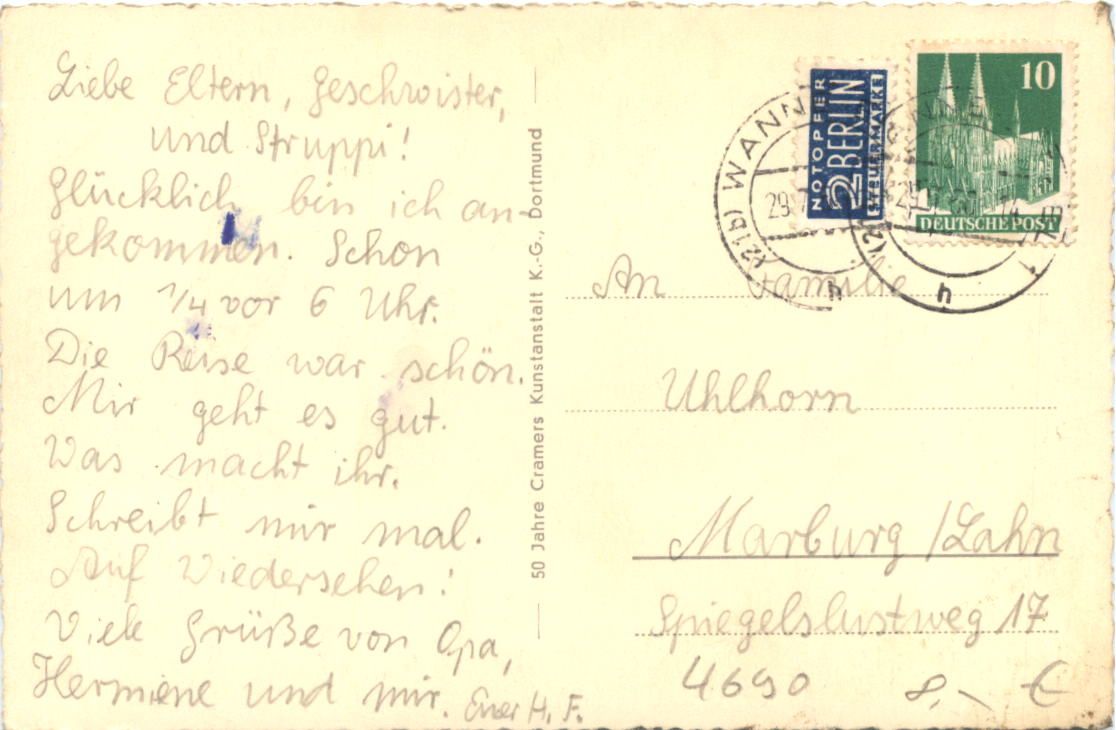 Liebe Eltern, Geschwister,
und Struppi!
Glücklich bin ich an-
gekommen. Schon
um 1/4 vor 6 Uhr.
Die Reise war schön.
Mir geht es gut.
Was macht ihr.
Schreibt mir mal.
Auf Wiedersehen!
Viele Grüße von Opa,
Hermiene und mir. Euer H. F.
50 Jahre Cramers Kunstanstalt K.-G., Dortmund
NOTOPFER
2 BERLIN
STEUERMARKE
10
DEUTSCHE POST
(21b) WANNE
29.7
h
An Familie
Uhlhorn
Marburg/Lahn
Spiegelslustweg 17
4690 8,- €